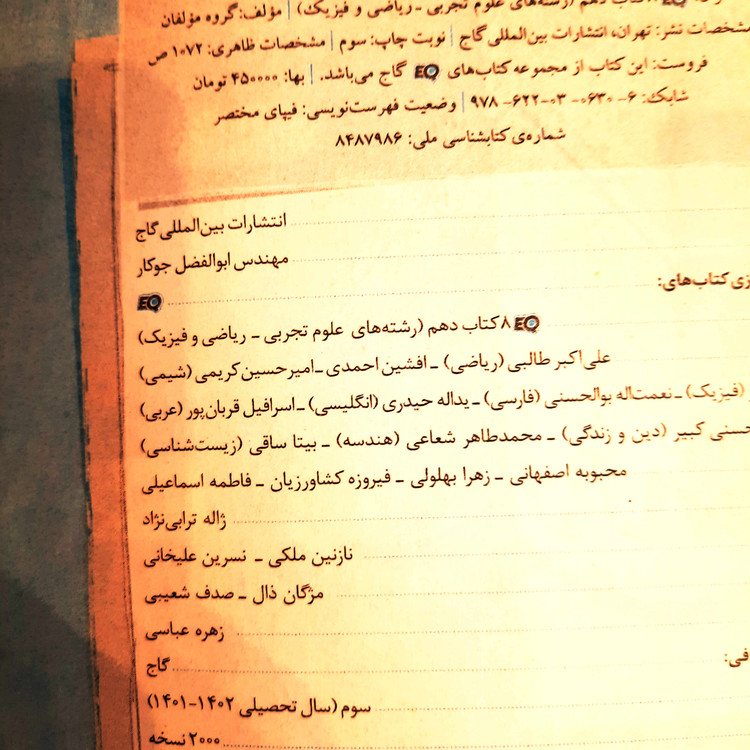 دهم (رشته‌های علوم تجربی ـ ریاضی و فیزیک) | مؤلف: گروه مؤلفان
مشخصات نشر: تهران، انتشارات بین‌المللی گاج | نوبت چاپ: سوم | مشخصات ظاهری: ۱۰۷۲ ص
فروست: این کتاب از مجموعه کتاب‌های EQ گاج می‌باشد. | بها: ۴۵۰۰۰۰ تومان
شابک: ۶-۰۶۳۰-۰۳-۶۲۲-۹۷۸ | وضعیت فهرست‌نویسی: فیپای مختصر
شماره‌ی کتابشناسی ملی: ۸۴۸۷۹۸۶
انتشارات بین‌المللی گاج
مهندس ابوالفضل جوکار
کتاب‌های: EQ
EQ ۸ کتاب دهم (رشته‌های علوم تجربی ـ ریاضی و فیزیک)
علی‌اکبر طالبی (ریاضی) ـ افشین احمدی ـ امیرحسین کریمی (شیمی)
(فیزیک) ـ نعمت‌اله بوالحسنی (فارسی) ـ یداله حیدری (انگلیسی) ـ اسرافیل قربان‌پور (عربی)
کبیر (دین و زندگی) ـ محمدطاهر شعاعی (هندسه) ـ بیتا ساقی (زیست‌شناسی)
محبوبه اصفهانی ـ زهرا بهلولی ـ فیروزه کشاورزیان ـ فاطمه اسماعیلی
ژاله ترابی‌نژاد
نازنین ملکی ـ نسرین علیخانی
مژگان ذال ـ صدف شعیبی
زهره عباسی
گاج
سوم (سال تحصیلی ۱۴۰۲-۱۴۰۱)
۲۰۰۰ نسخه